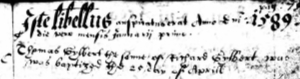 Iste libellus Anno Dni 1589
die vero mensis January primo
Thomas Gylbert the sonne of Richard Gylbert was
was baptized the 20 day of Aprill